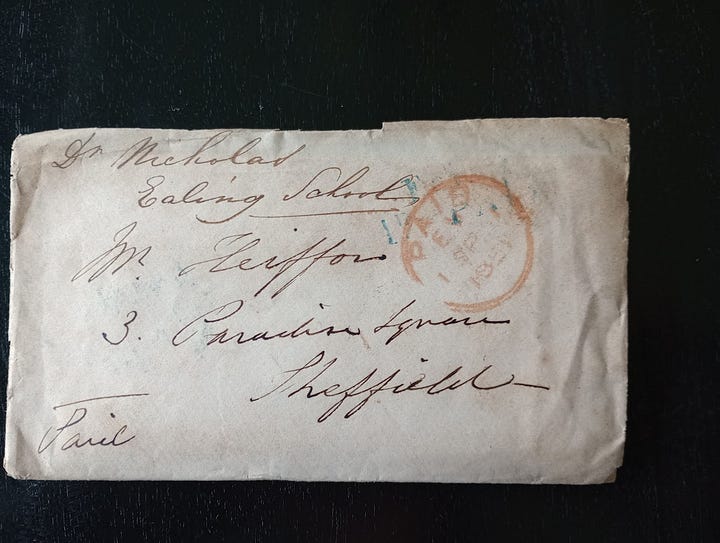 Dr Nicholas
Ealing School
Mr. Heiffor
3. Paradise Square
Sheffield
Paid
PAID
1851